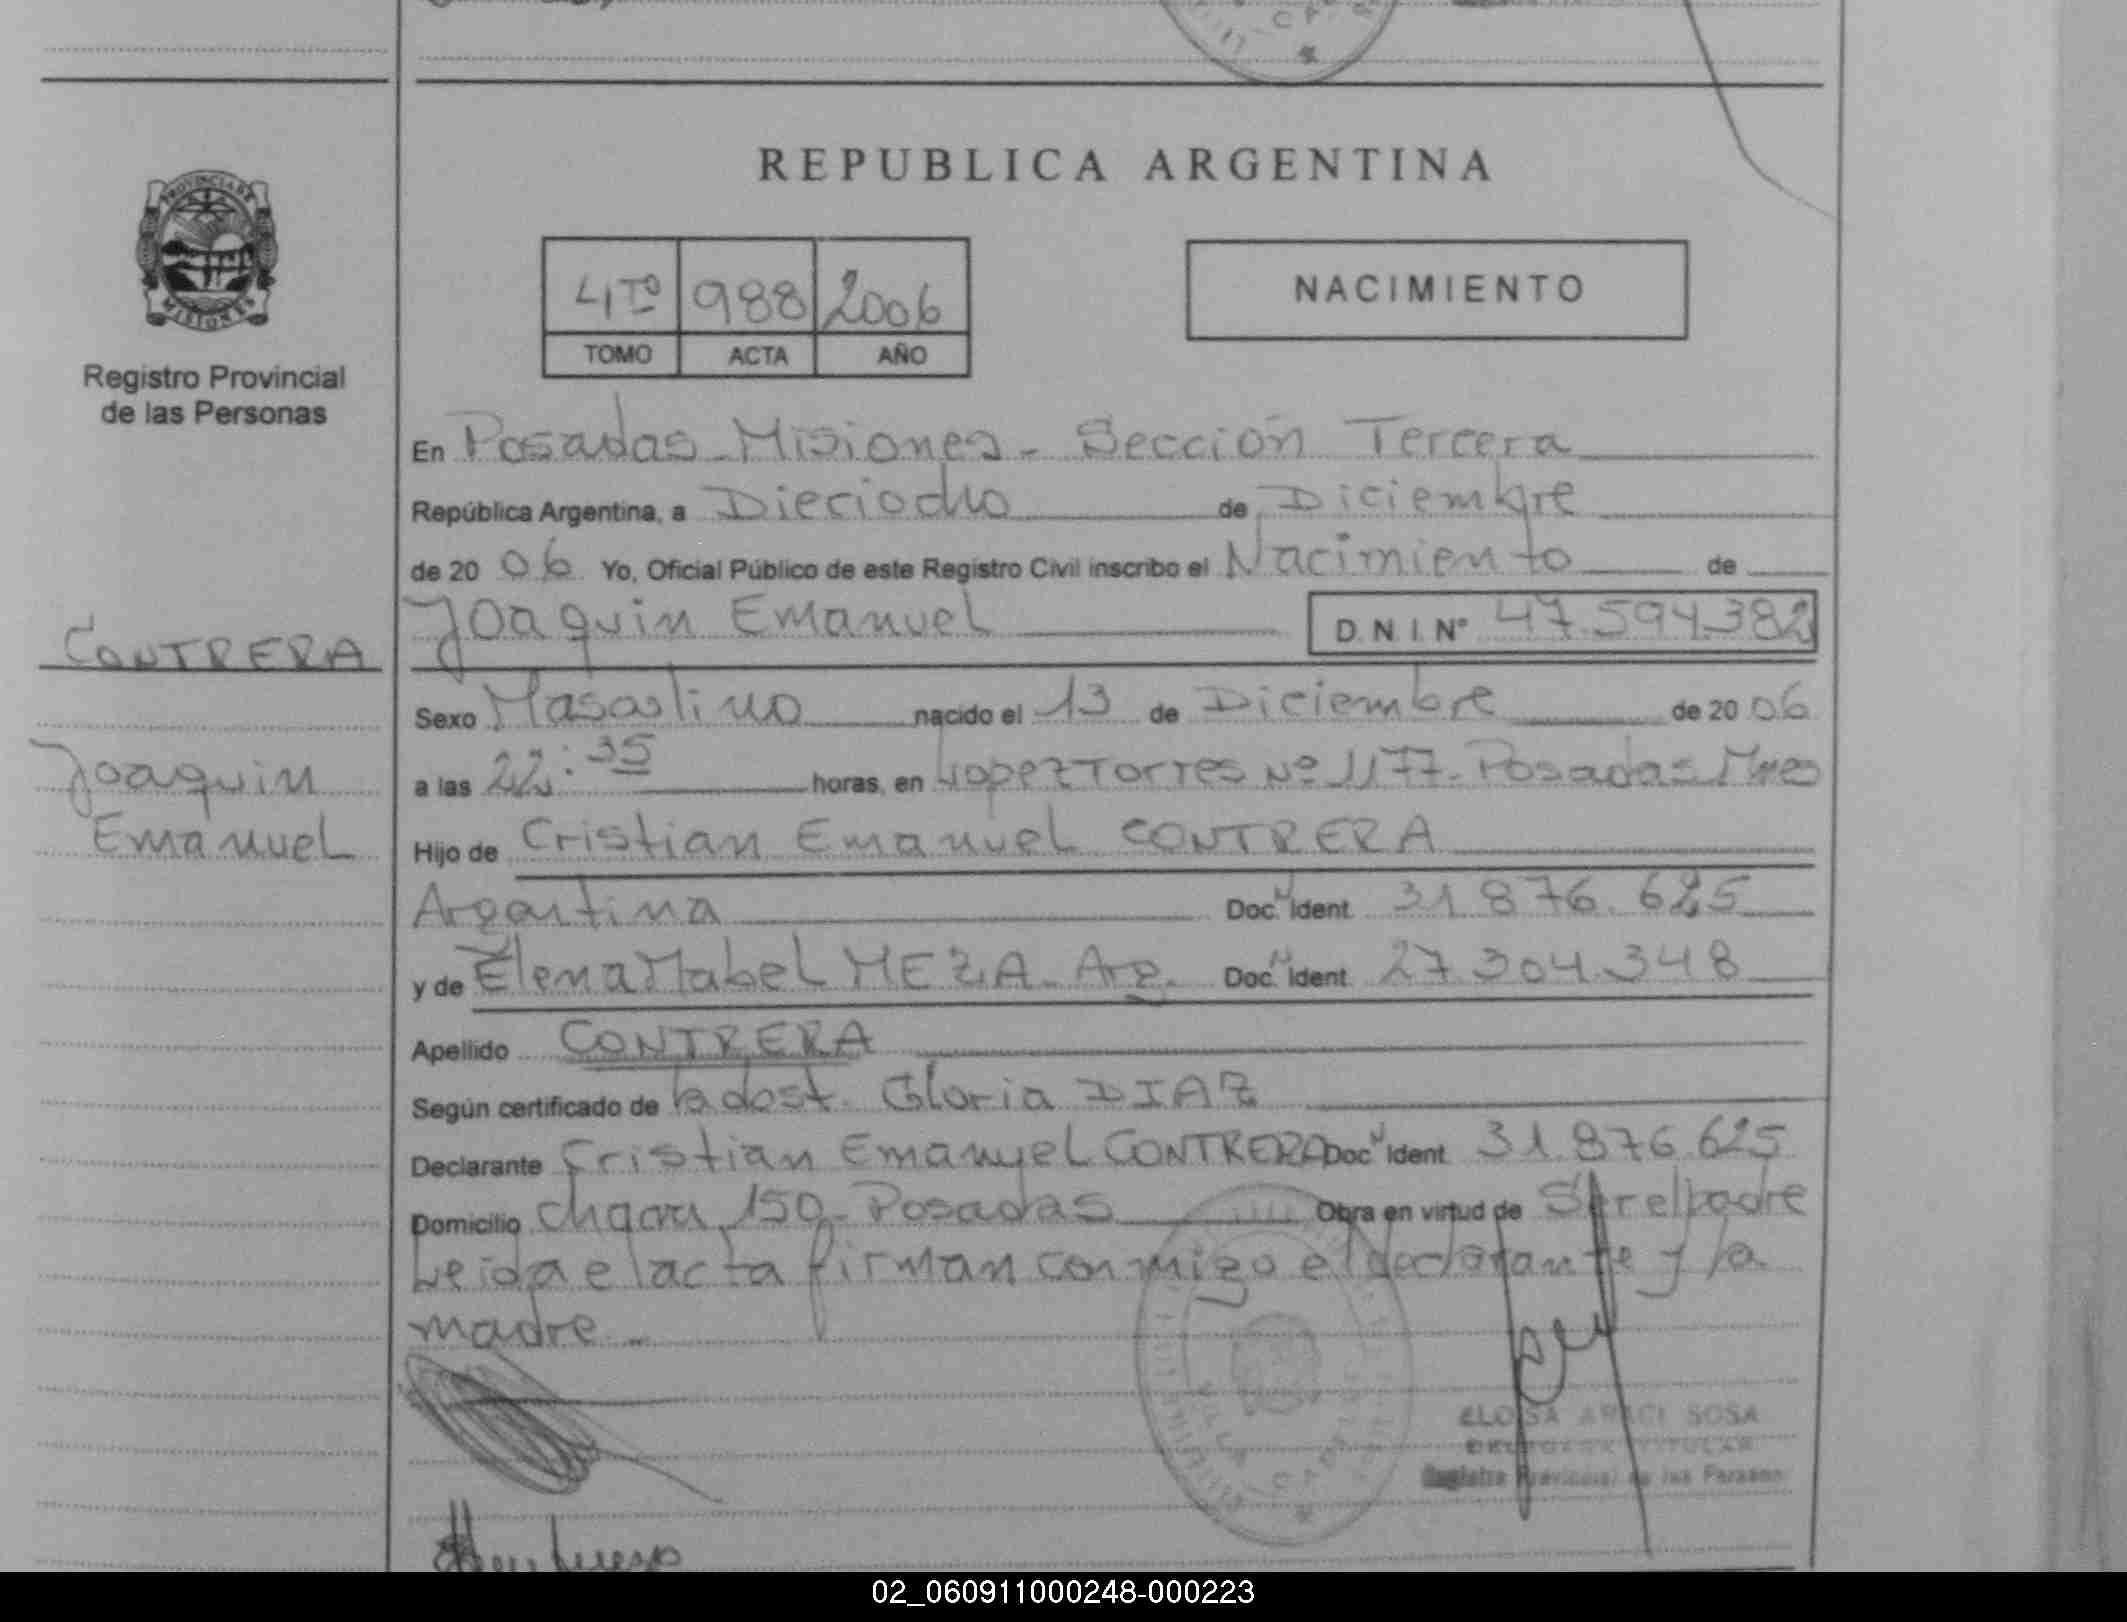 REPUBLICA ARGENTINA
PROVINCIA DE
MISIONES
4TO 988 2006
TOMO ACTA AÑO
NACIMIENTO
Registro Provincial
de las Personas
En Posadas Misiones - Sección Tercera
República Argentina, a Dieciocho de Diciembre
de 20 06 Yo, Oficial Público de este Registro Civil inscribo el Nacimiento de
Joaquin Emanuel D.N.I. Nº 47.594.382
CONTRERA
Sexo Masculino nacido el 13 de Diciembre de 20 06
Joaquin
a las 22:35 horas, en Lopez Torres Nº 1177 - Posadas Mnes
Emanuel
Hijo de Cristian Emanuel CONTRERA
Argentina Doc. Ident. 31.876.625
y de Elena Mabel MEZA - Arg. Doc. Ident. 27.304.348
Apellido CONTRERA
Según certificado de la obst. Gloria DIAZ
Declarante Cristian Emanuel CONTRERA Doc. Ident. 31.876.625
Domicilio chacra 150 - Posadas Obra en virtud de Ser el padre
Leida el acta firman conmigo el declarante y la
madre -
ELOISA ARACI SOSA
TITULAR
Registro Provincial de las Personas
02_060911000248-000223